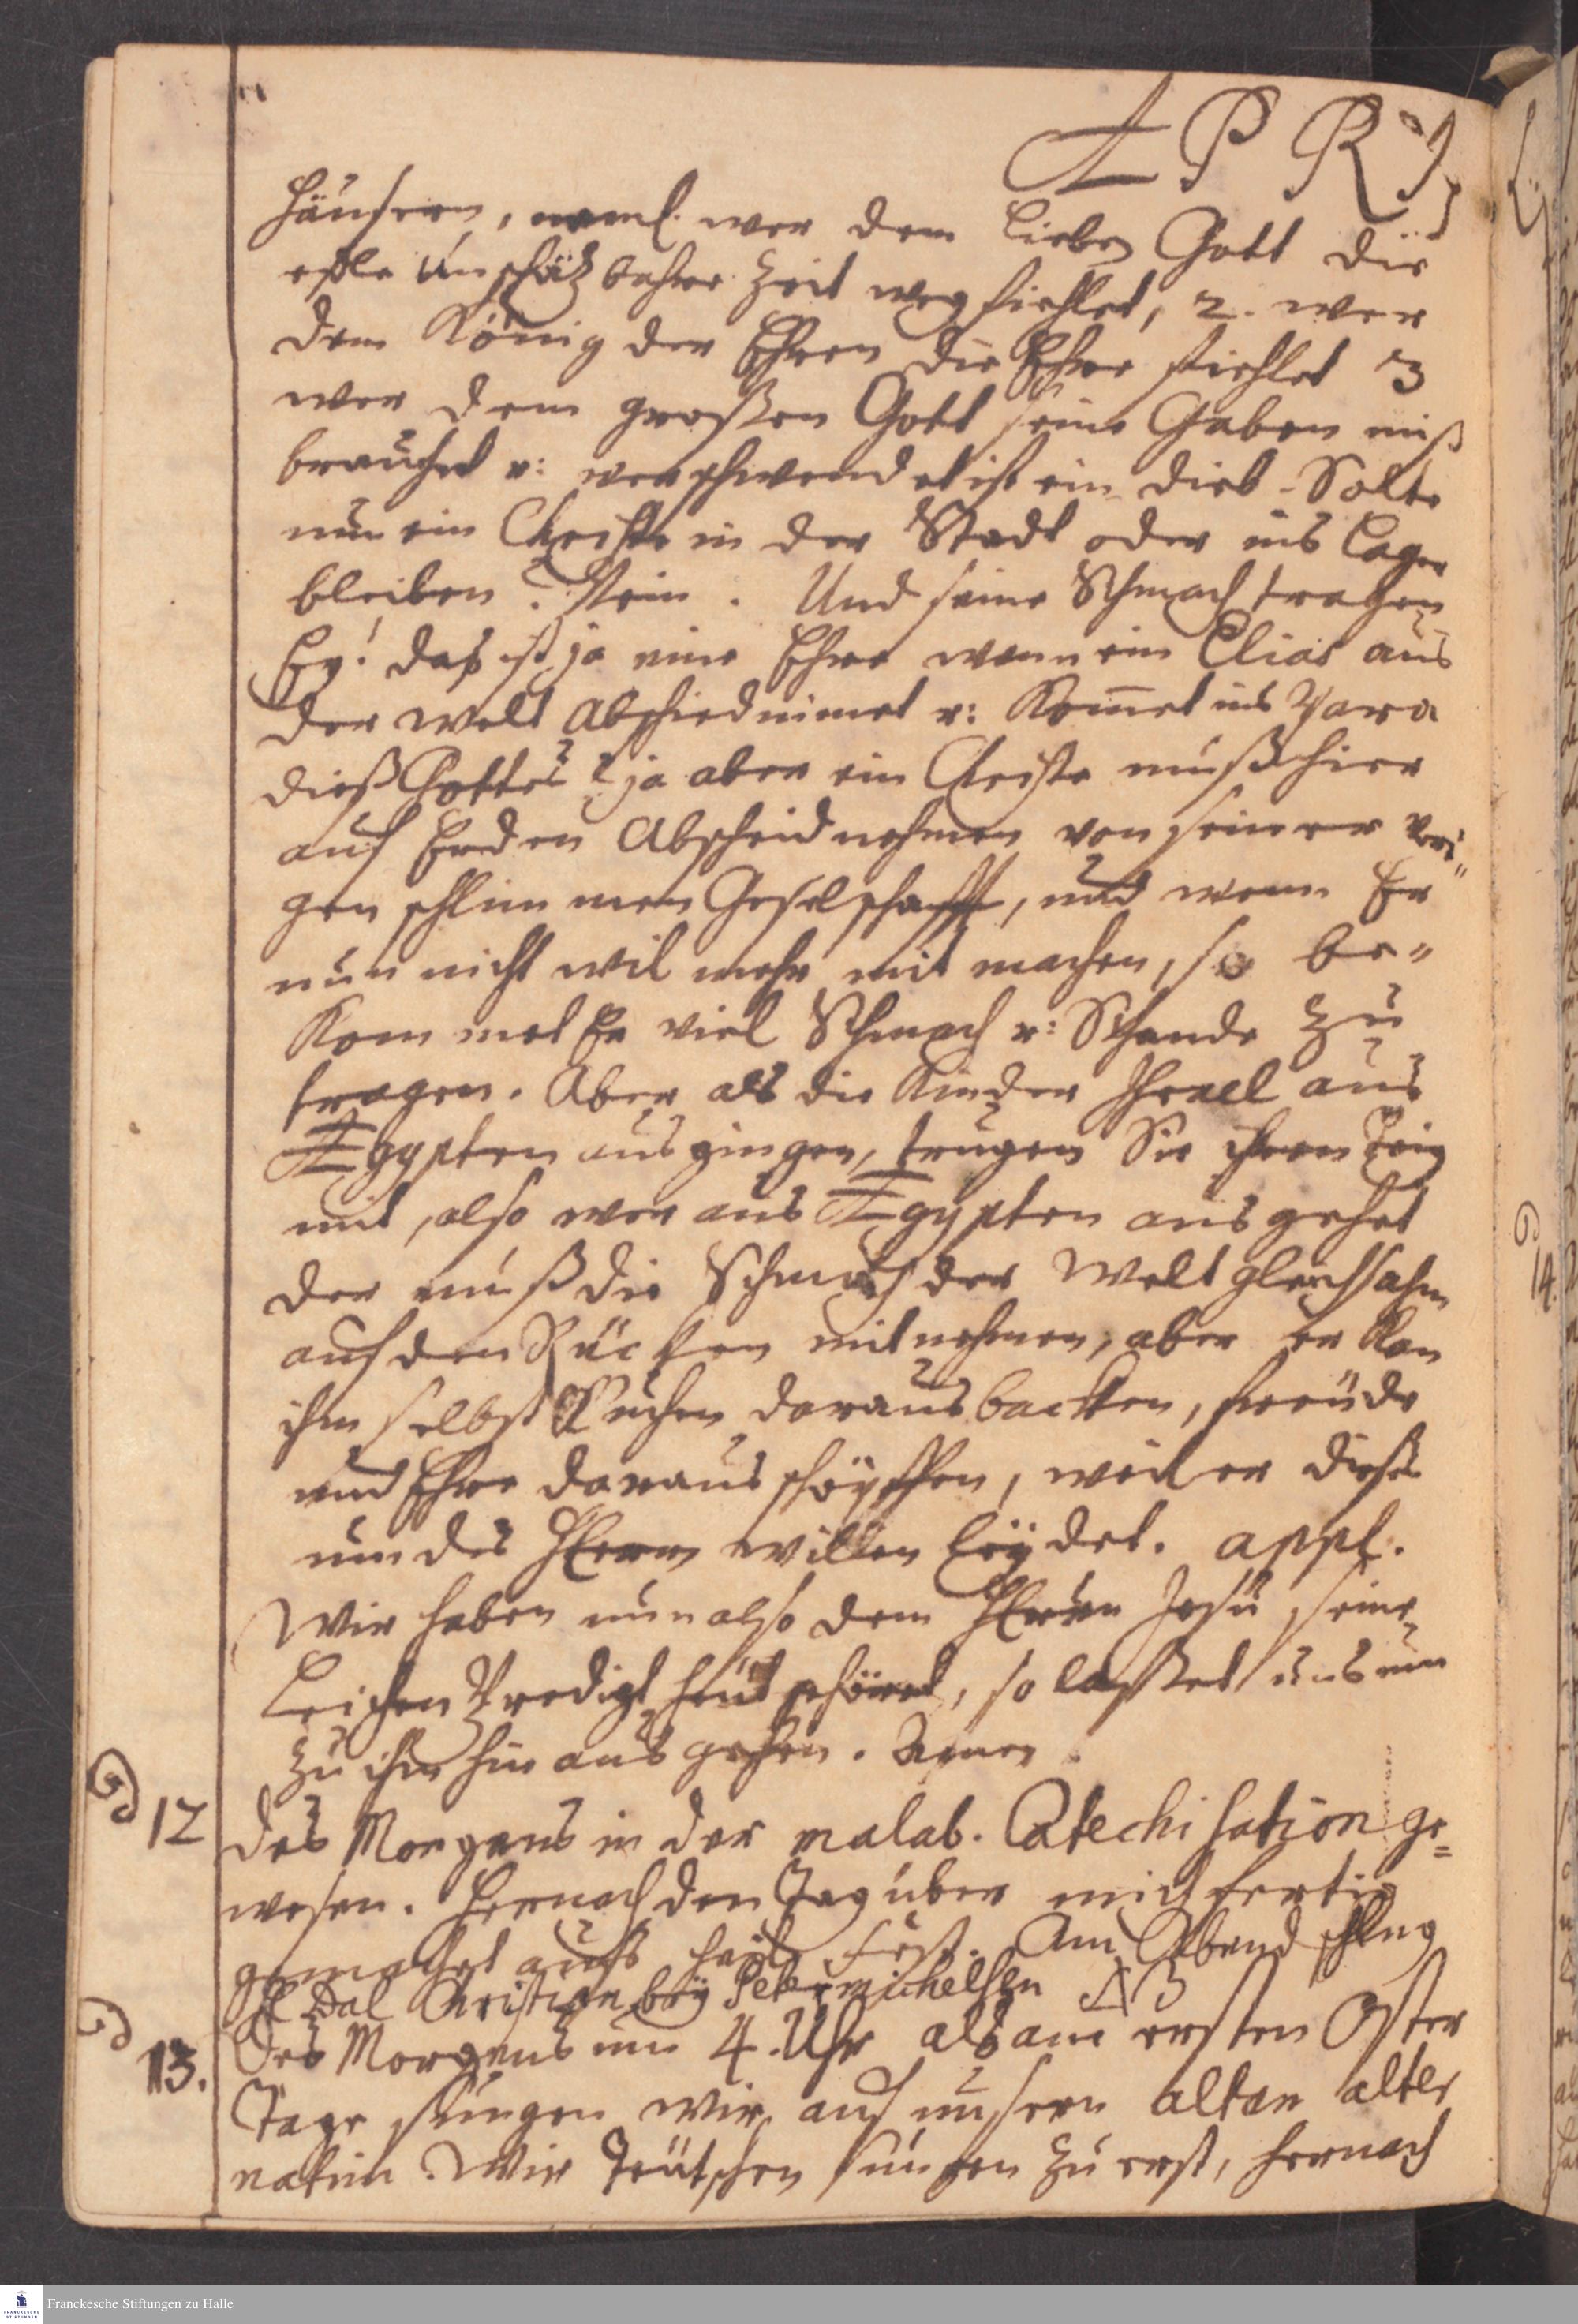 APRI
häusern, neml. wer dem Lieben Gott die
edle unschäzbahre Zeit weg stiehlet, 2. wer
dem König der Ehren die Ehre stiehlet 3
wer dem großen Gott seine Gaben miß
brauchet u: verschwendet ist ein dieb. Solte
nun ein Christe in der Stadt oder ins Lager
bleiben? Nein. Und seine Schmach tragen
Ey! das ist ja eine Ehre wenn ein Elias aus
der welt Abschied nimet u: Komet ins Para
dieß Gottes? ja aber ein Christe muß hier
auf Erden Abscheid nehmen von seiner vori"
gen schlimmen Geselschafft, und wenn Er
nun nicht wil mehr mit machen, so be"
Kommet Er viel Schmach u: Schande zu
tragen. Aber als die Kinder Israel aus
Ægypten aus gingen, trugen Sie ihren Teig
mit, also wer aus Ægypten aus gehet
der muß die Schmach der Welt gleichsahm
auf den Rücken mit nehmen, aber er Kan
ihm selbst Kuchen daraus backen, freude
und Ehre daraus schöpffen, weil er dieses
um des HErrn willen leydet. appl.
Wir haben nun also dem HErrn Jesu seine
Leichen Predigt heut gehöret, so lasset uns nun
zu ihm hin aus gehen. Amen.
12 des Morgens in der malab. Catechisation ge=
wesen. Hernach den Tag über mich fertig
gemachet aufs heil. Fest. Am Abend schlug
H Dal Christian bey Peter michelsen NB
13. Des Morgens um 4. Uhr als am ersten Oster
Tage sungen wir auf unsern altan alter
natim. Wir Teutschen sungen zu erst, hernach
14.
Franckesche Stiftungen zu Halle